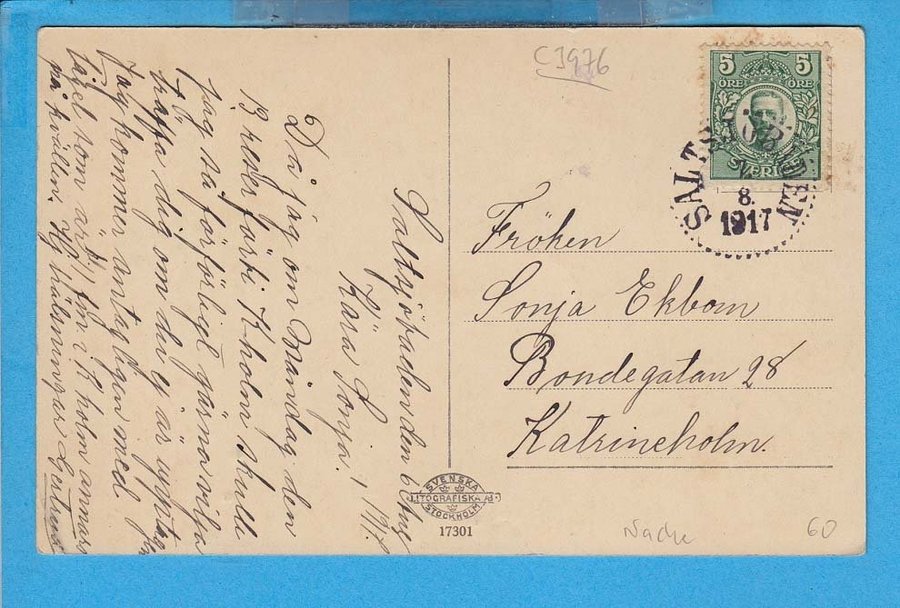 C 1976
5 5
ÖRE ÖRE
SVERIGE
SALTSJÖBADEN
8.
1917
Saltsjöbaden den 6 Aug
Kära Sonja.
Då jag om Måndag den
13 reser förbi K-holm skulle
jag så förfärligt gärna vilja
träffa dig om du ej är upptagen
Jag kommer antagligen med
tåget som är i K-holm annars
på kvällen. Hj. hälsningar Gertrud
Fröken
Sonja Ekbom
Bondegatan 28
Katrineholm.
SVENSKA
LITOGRAFISKA AB.
STOCKHOLM
17301
60